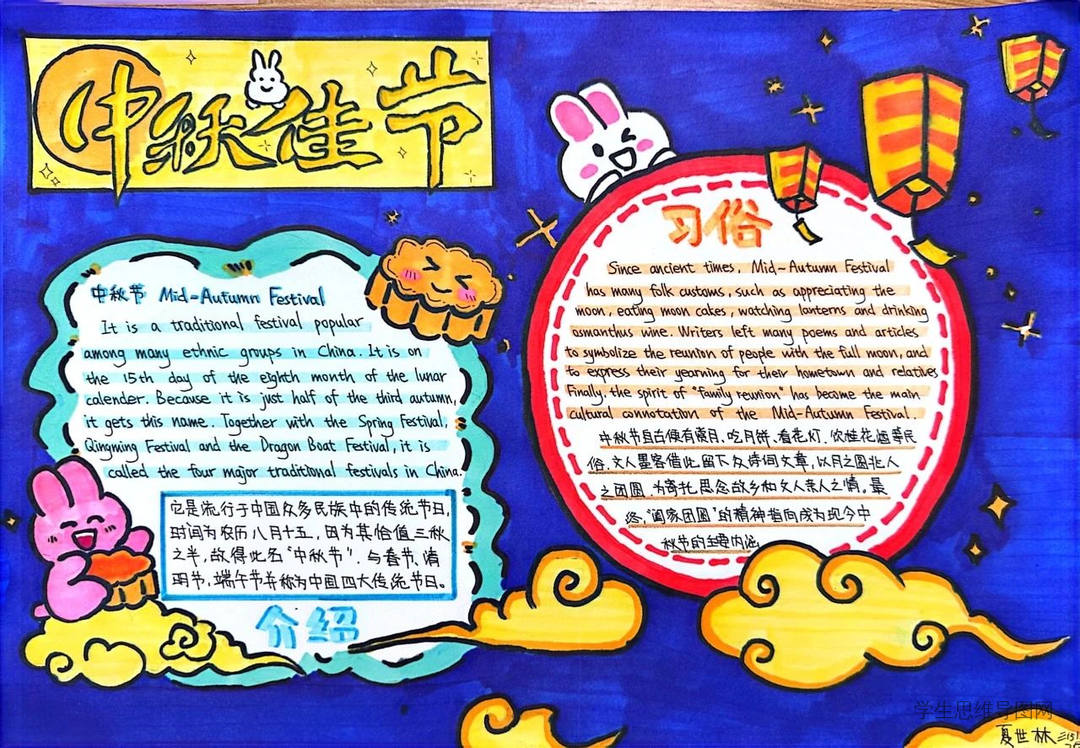 中秋佳节
中秋节 Mid-Autumn Festival
It is a traditional festival popular
among many ethnic groups in China. It is on
the 15th day of the eighth month of the lunar
calender. Because it is just half of the third autumn,
it gets this name. Together with the Spring Festival,
Qingming Festival and the Dragon Boat Festival, it is
called the four major traditional festivals in China.
它是流行于中国众多民族中的传统节日,
时间为农历八月十五,因为其恰值三秋
之半,故得此名“中秋节”.与春节、清
明节、端午节并称为中国四大传统节日。
介绍
习俗
Since ancient times, Mid-Autumn Festival
has many folk customs, such as appreciating the
moon, eating moon cakes, watching lanterns and drinking
osmanthus wine. Writers left many poems and articles
to symbolize the reunion of people with the full moon, and
to express their yearning for their hometown and relatives
Finally, the spirit of "family reunion" has become the main
cultural connotation of the Mid-Autumn Festival.
中秋节自古便有赏月、吃月饼、看花灯、饮桂花酒等民
俗,文人墨客借此留下众诗词文章,以月之圆兆人
之团圆.为寄托思念故乡和文人亲人之情。最
终,“阖家团圆”的精神指向成为现今中
秋节的主要内涵
学生思维导图网
夏世林